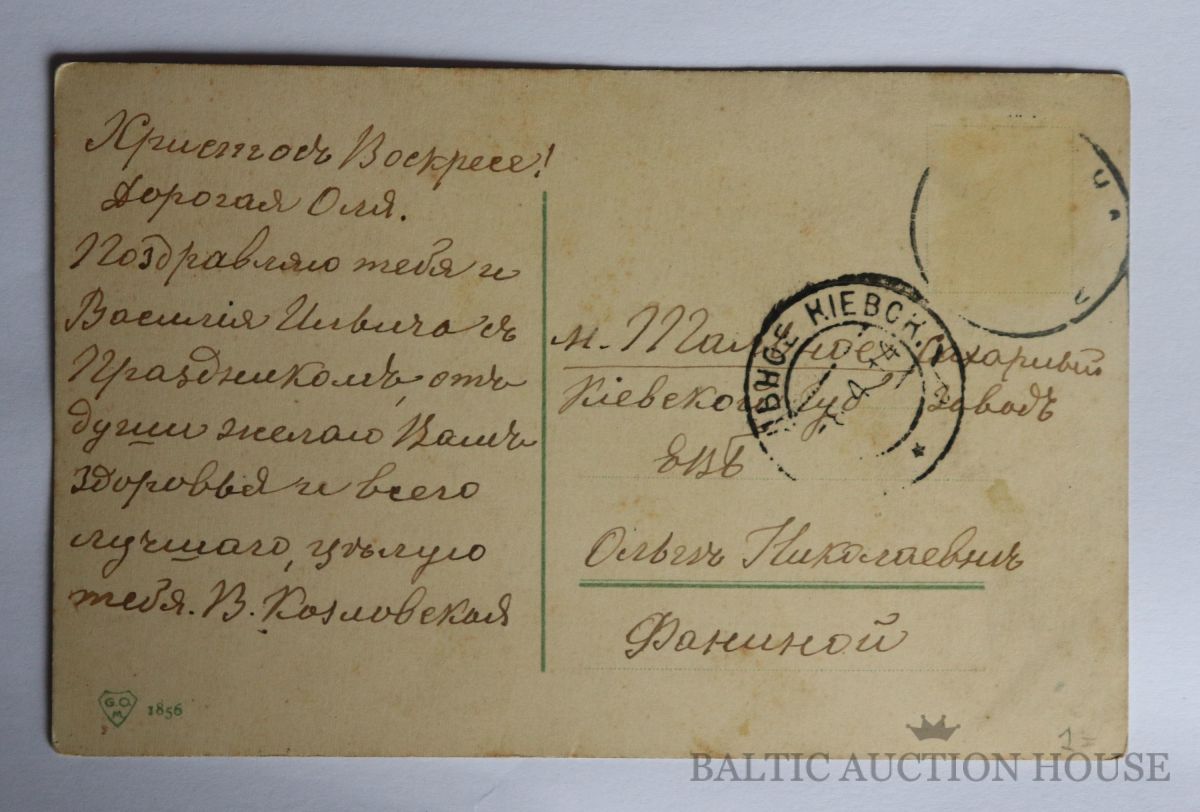 Христосъ Воскресе!
Дорогая Оля.
Поздравляю тебя и
Василія Ильича съ
Праздникомъ, отъ
души желаю Вамъ
здоровья и всего
лучшаго, цѣлую
тебя. В. Козловская
G.O.
M.
1856
ЬНОЕ КІЕВСК.
м. Тальное Сахарный
Кіевской губ заводъ
ЕВБ
Ольгѣ Николаевнѣ
Фаниной
BALTIC AUCTION HOUSE